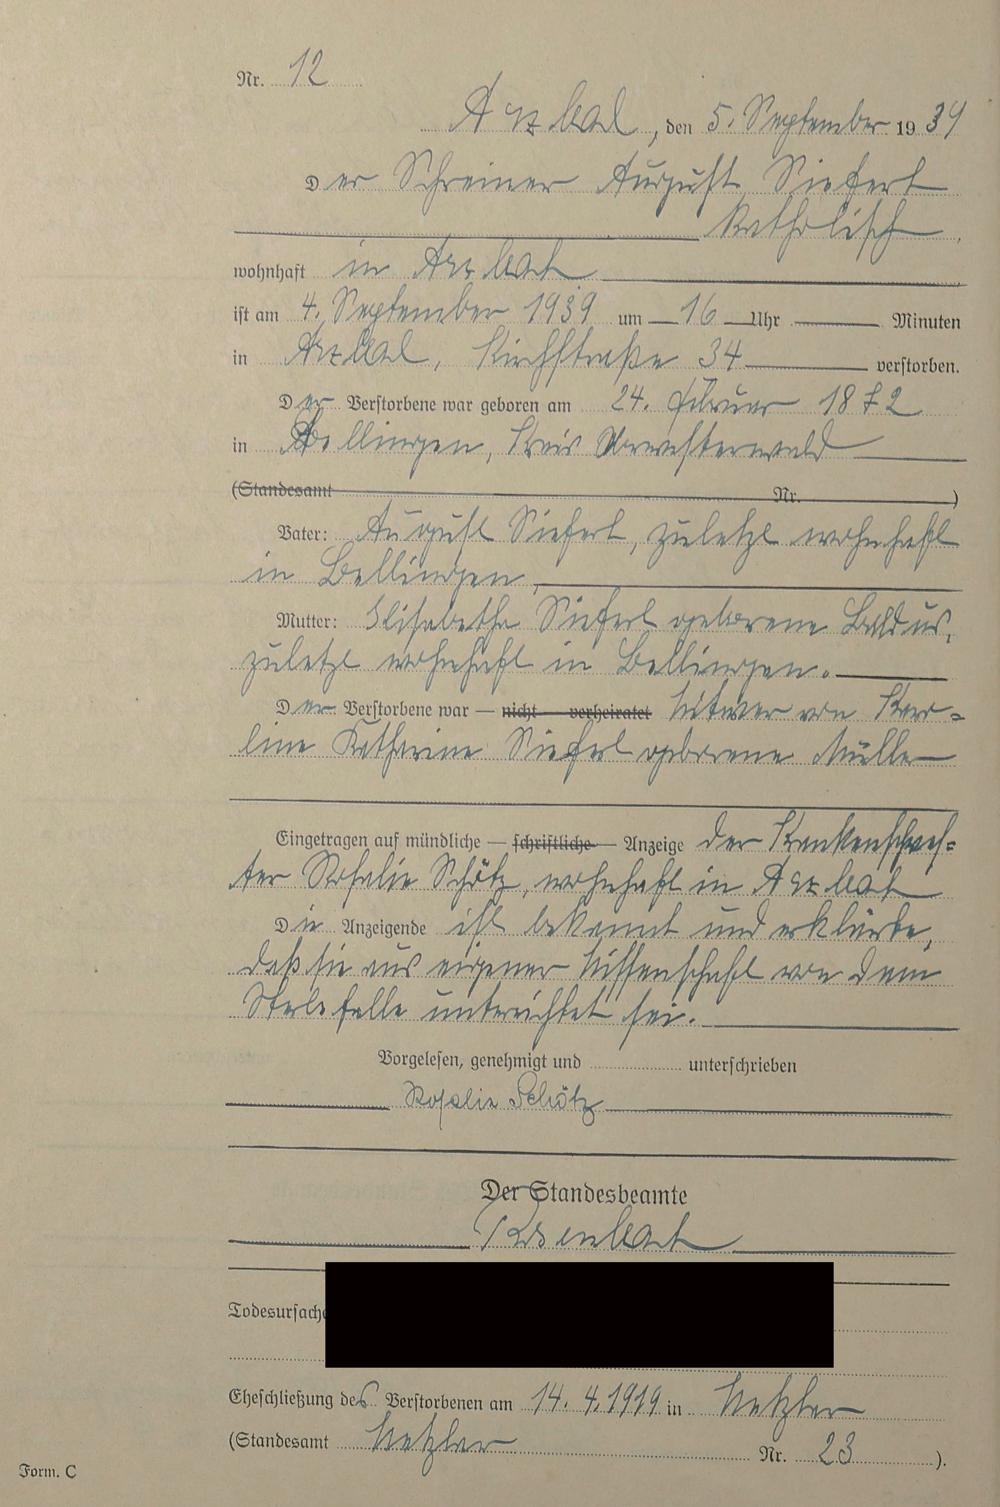 Nr. 12
Arzbach, den 5. September 1939
Der Schreiner August Siefert
katholisch,
wohnhaft in Arzbach
ist am 4. September 1939 um 16 Uhr Minuten
in Arzbach, Kirchstraße 34 verstorben.
Der Verstorbene war geboren am 24. Februar 1872
in Bellingen, Kreis Oberwesterwald
(Standesamt Nr. )
Vater: August Siefert, zuletzt wohnhaft
in Bellingen,
Mutter: Elisabetha Siefert geborene Baldus,
zuletzt wohnhaft in Bellingen.
Der Verstorbene war — nicht — verheiratet Witwer von Karo-
line Katharine Siefert geborene Müller
Eingetragen auf mündliche — schriftliche — Anzeige der Krankenschwes-
ter Rosalie Schötz, wohnhaft in Arzbach
Die Anzeigende ist bekannt und erklärte,
daß sie aus eigener Wissenschaft von dem
Sterbefalle unterrichtet sei.
Vorgelesen, genehmigt und unterschrieben
Rosalie Schötz
Der Standesbeamte
Todesursache
Eheschließung des Verstorbenen am 14. 4. 1919 in Wetzlar
(Standesamt Wetzlar Nr. 23 ).
Form. C